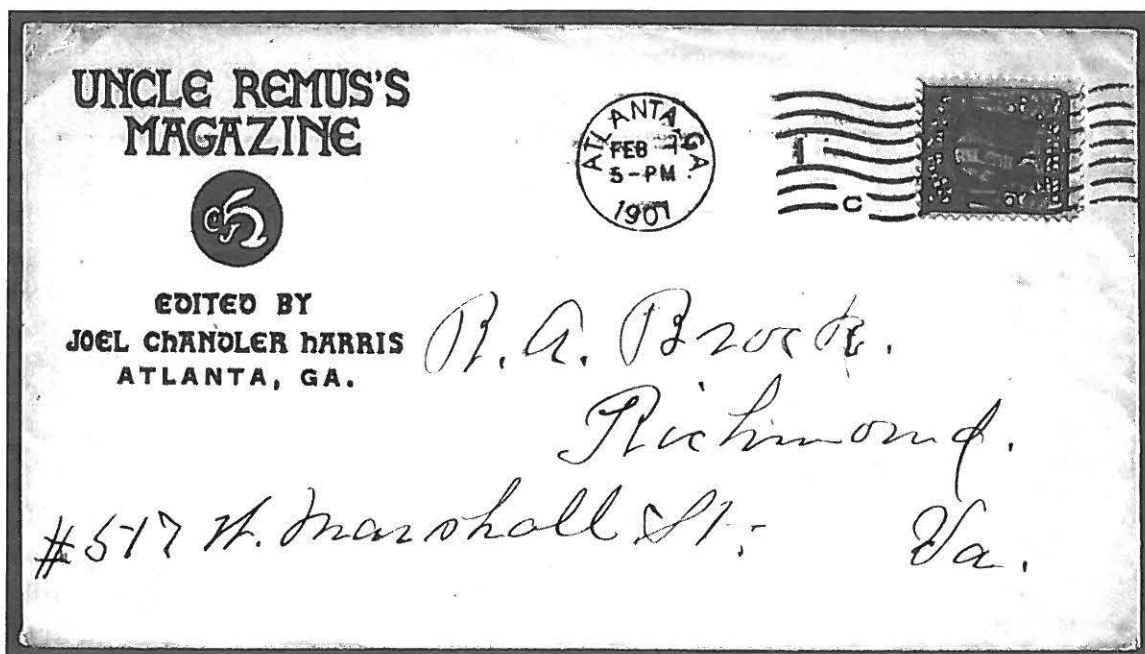 UNCLE REMUS'S
MAGAZINE
EDITED BY
JOEL CHANDLER HARRIS
ATLANTA, GA.
ATLANTA, GA
FEB 7
5-PM
1907
1
C
R. A. Brock.
Richmond.
#517 W. Marshall St.
Va.